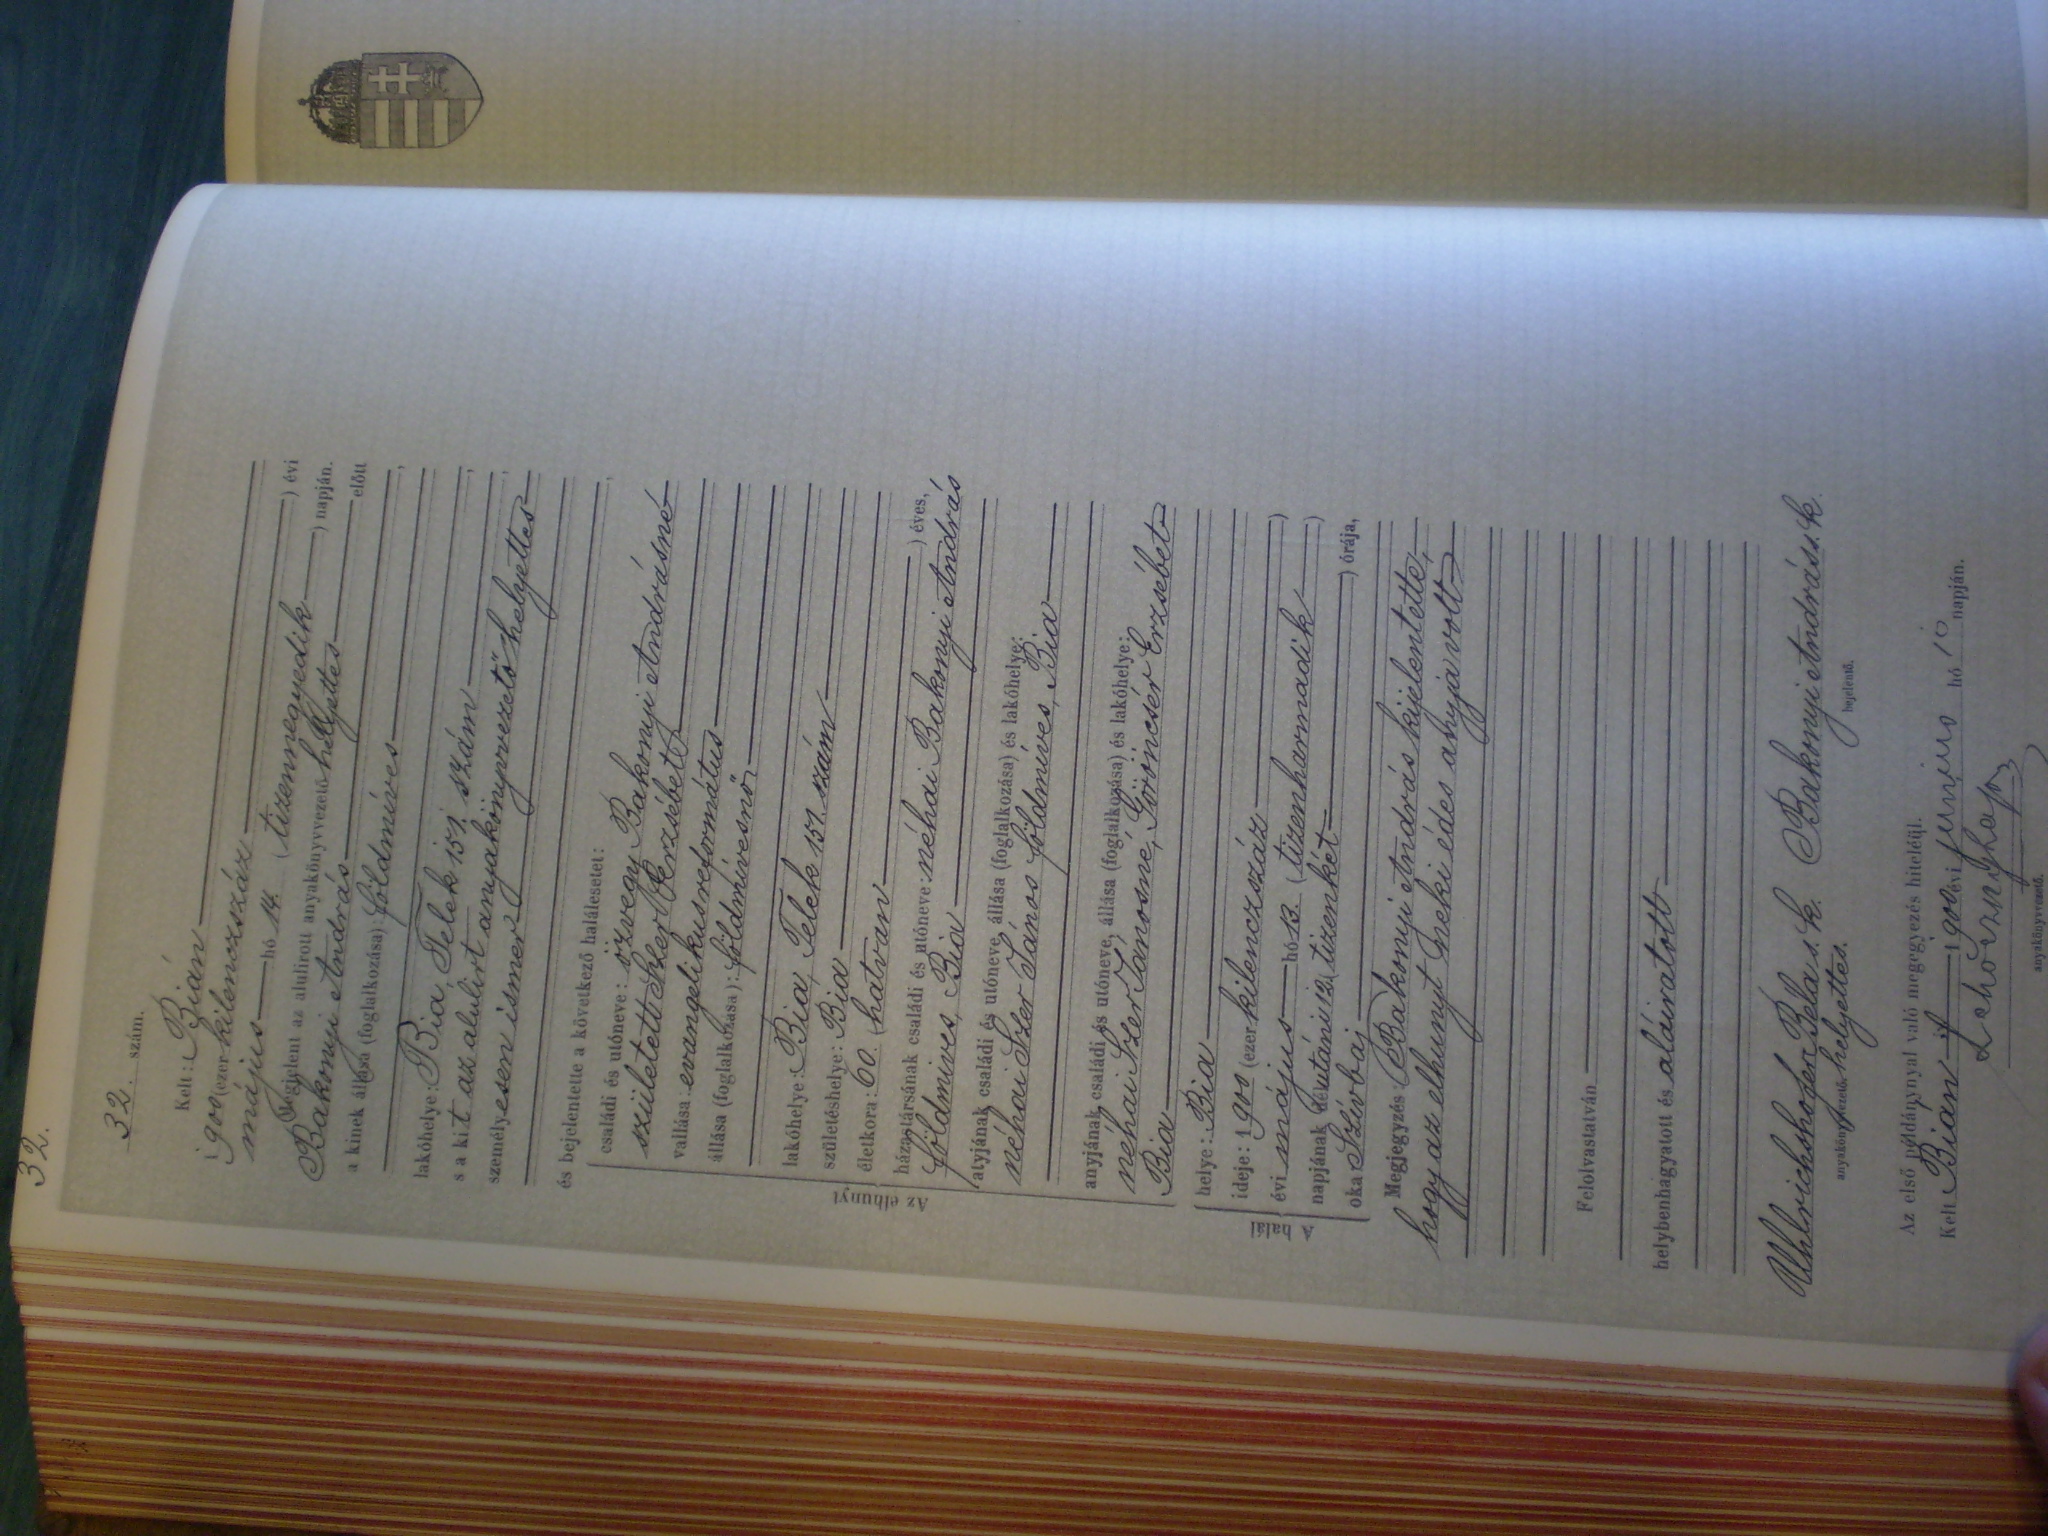 32.
32. szám.
Kelt: Bián
1900 (ezer kilenczszáz) évi
május hó 14. (tizennegyedik) napján.
Megjelent az alulirott anyakönyvvezető helyettes előtt
Bakonyi András
a kinek állása (foglalkozása): földmíves,
lakóhelye: Bia Telek 151. szám,
s a kit az alulirt anyakönyvvezető helyettes
személyesen ismer,
és bejelentette a következő halálesetet:
családi és utóneve: özvegy Bakonyi Andrásné
született Szer Erzsébet
vallása: evangelikus református
állása (foglalkozása): földmívesnő,
lakóhelye: Bia, Telek 151. szám
születéshelye: Bia
életkora: 60. (hatvan) éves,
házastársának családi és utóneve: néhai Bakonyi András
földmíves, Bia
atyjának családi és utóneve, állása (foglalkozása) és lakóhelye:
néhai Szer János földmíves, Bia
anyjának családi és utóneve, állása (foglalkozása) és lakóhelye:
néhai Szer Jánosné, Göröncsér Erzsébet
Bia
Az elhunyt
helye: Bia
ideje: 1900 (ezer kilenczszáz)
évi május hó 13. (tizenharmadik)
napjának délutáni 12, (tizenkét) órája,
oka Szívbaj
A halál
Megjegyzés: Bakonyi András kijelentette,
hogy az elhunyt neki édes anyja volt
Felolvastatván
helybenhagyatott és aláiratott
Uhlrichshofer Béla s. k. Bakonyi András s. k.
anyakönyvvezető helyettes. bejelentő.
Az első példánynyal való megegyezés hiteléül.
Kelt Bián 1900 évi junius hó napján.
anyakönyvvezető.